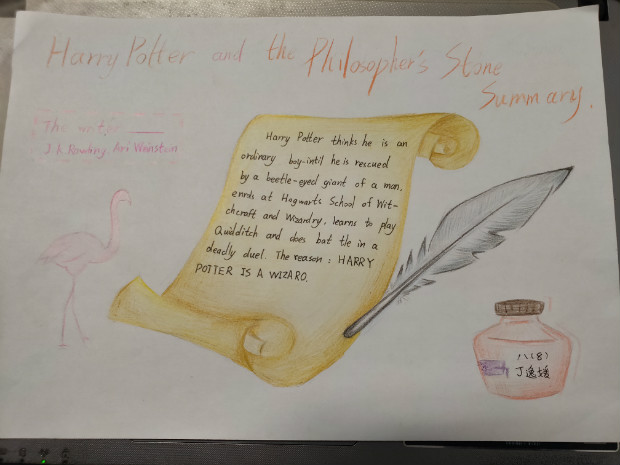 Harry Potter and the Philosopher's Stone
Summary.
The writer
J.K.Rowling. Ari Weinston
Harry Potter thinks he is an
ordinary boy-intil he is rescued
by a beetle-eyed giant of a man.
enrds at Hogwarts School of Wit-
chcraft and Wizardry, learns to play
Quidditch and does bat tle in a
deadly duel. The reason : HARRY
POTTER IS A WIZARO.
八(8)
丁逸媛